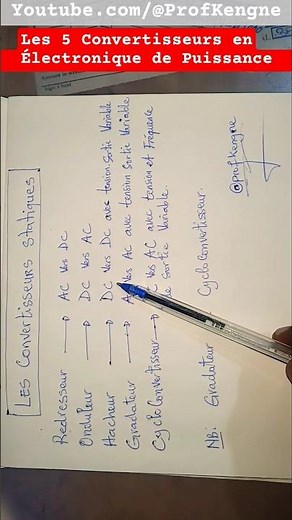 Youtube.com/@ProfKengne
Les 5 Convertisseurs en
Électronique de Puissance
LES Convertisseurs Statiques
Redresseur → AC Vers DC
Onduleur → DC Vers AC
Hacheur → DC Vers DC avec tension Sortie Variable
Gradateur → AC Vers AC avec tension Sortie Variable
CycloConvertisseur → Vers AC avec tension et Fréquence
de Sortie Variable.
NB: Gradateur CycloConvertisseur.
@profKengne